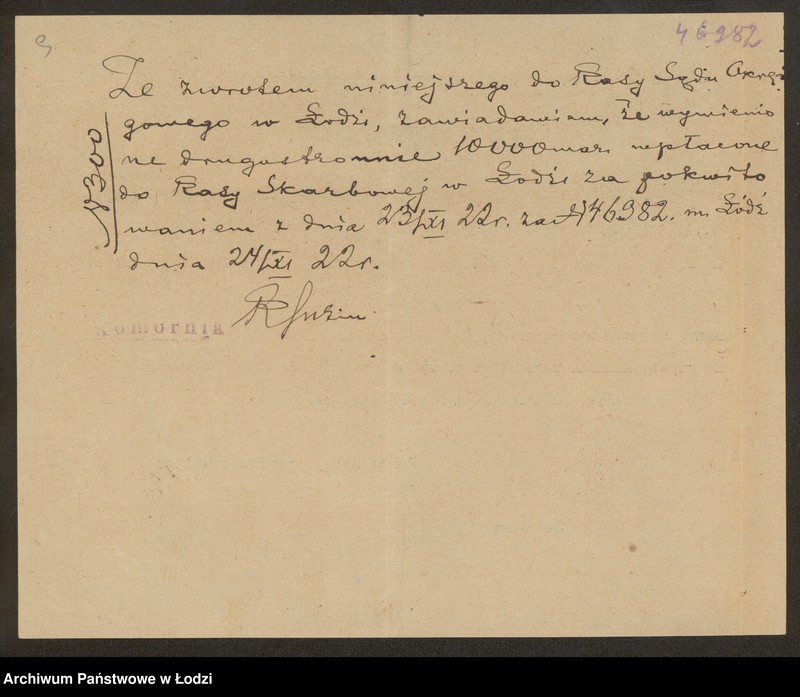 46982
Ze zwrotem niniejszego do Kasy Sądu Okrę-
gowego w Łodzi, zawiadamiam, że wymienio
ne drugustronnie 10000 mar. wpłacone
do Kasy Skarbowej w Łodzi za pokwito
waniem z dnia 23/XI 22 r. za № 46982. m. Łódź
dnia 24/XI 22 r.
№ 300
Komornik
Archiwum Państwowe w Łodzi